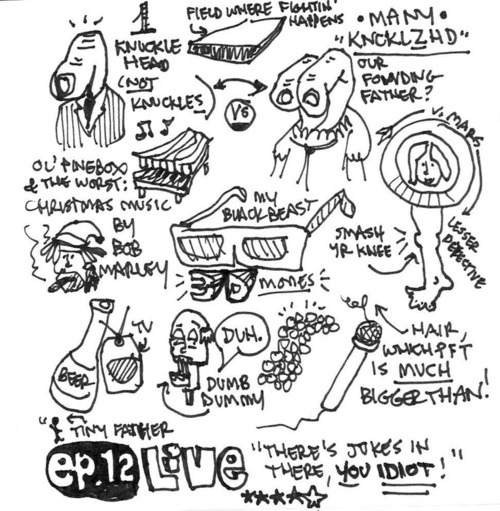 FIELD WHERE FIGHTIN'
HAPPENS
• MANY •
"KNCKLZHD"
KNUCKLE
HEAD
(NOT
KNUCKLES)
VS
OUR
FOUNDING
FATHER?
V. MARS
LESSER
DETECTIVE
OL' PINEBOX
& THE WORST:
CHRISTMAS MUSIC
BY
BOB
MARLEY
MY
BLACK BEAST
SMASH
YR KNEE
3D
MOVIES
TV
BEER
DUH.
DUMB
DUMMY
HAIR,
WHICH PFT
IS MUCH
BIGGER THAN!
"TINY FATHER
ep.12 LIVE
"THERE'S JOKES IN
THERE, YOU IDIOT!"